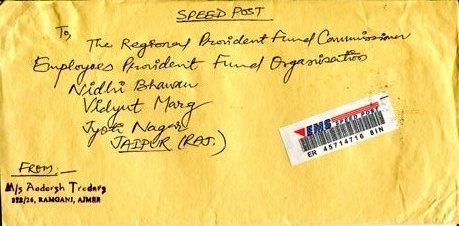 SPEED POST
To,
The Regional Provident Fund Commissioner
Employees Provident Fund Organisation
Nidhi Bhawan
Vidyut Marg
Jyoti Nagar
JAIPUR (RAJ.)
EMS SPEED POST
ER 45714716 8IN
FROM:-
M/s Aadarsh Traders
212/26, RAMGANJ, AJMER